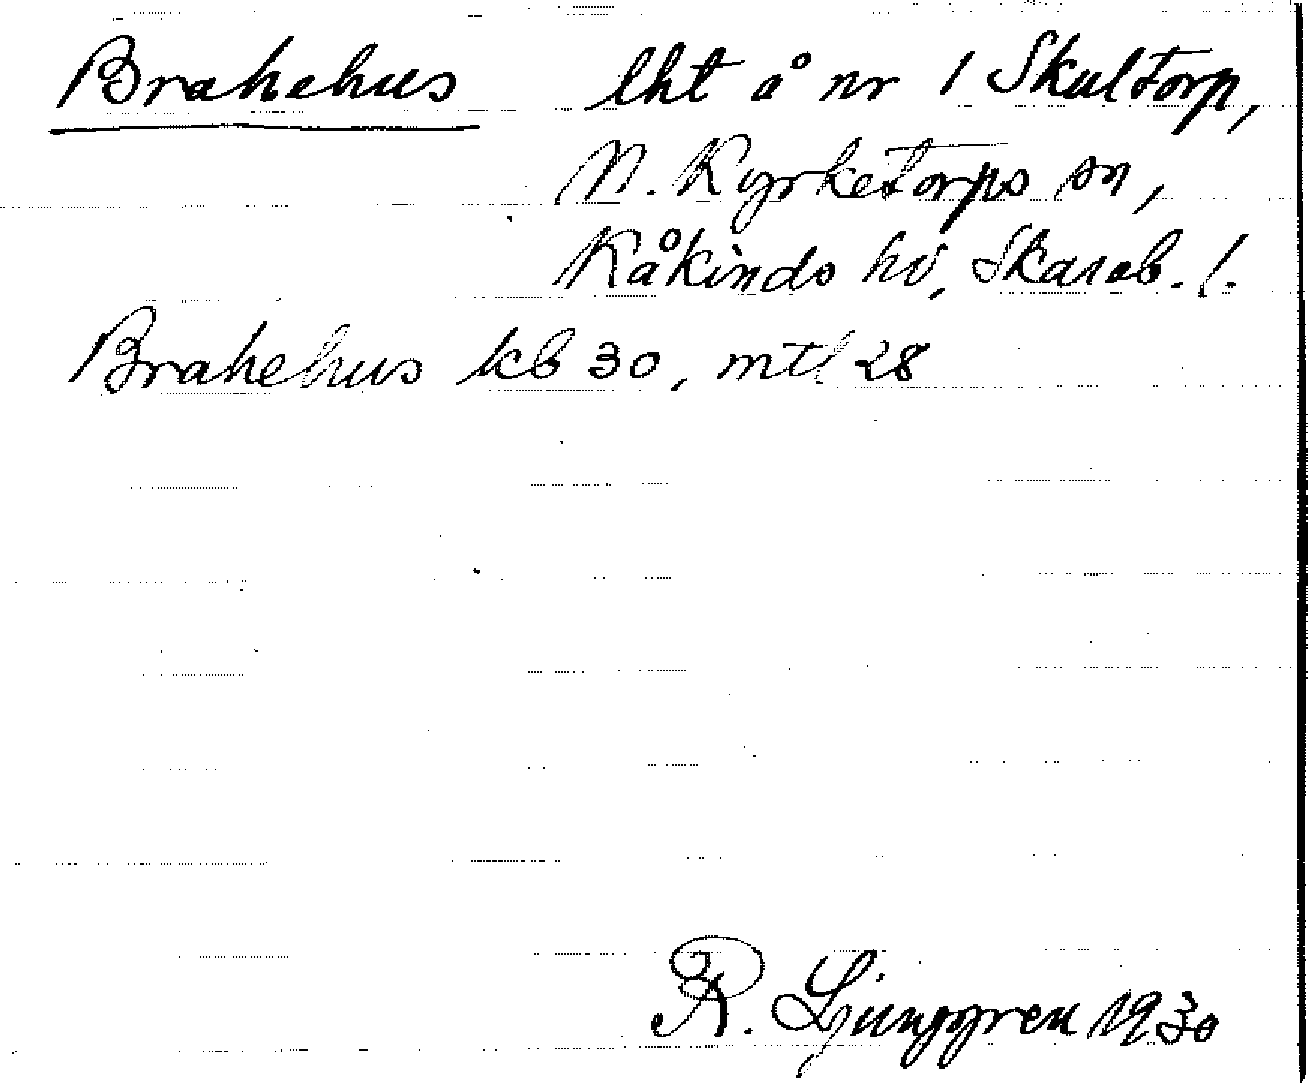 Brahehus lht å nr 1 Skultorp,
N. Kyrketorps sn,
Kåkinds hd, Skarab. l.
Brahehus kb 30, mtl 28
R. Ljunggren 1930